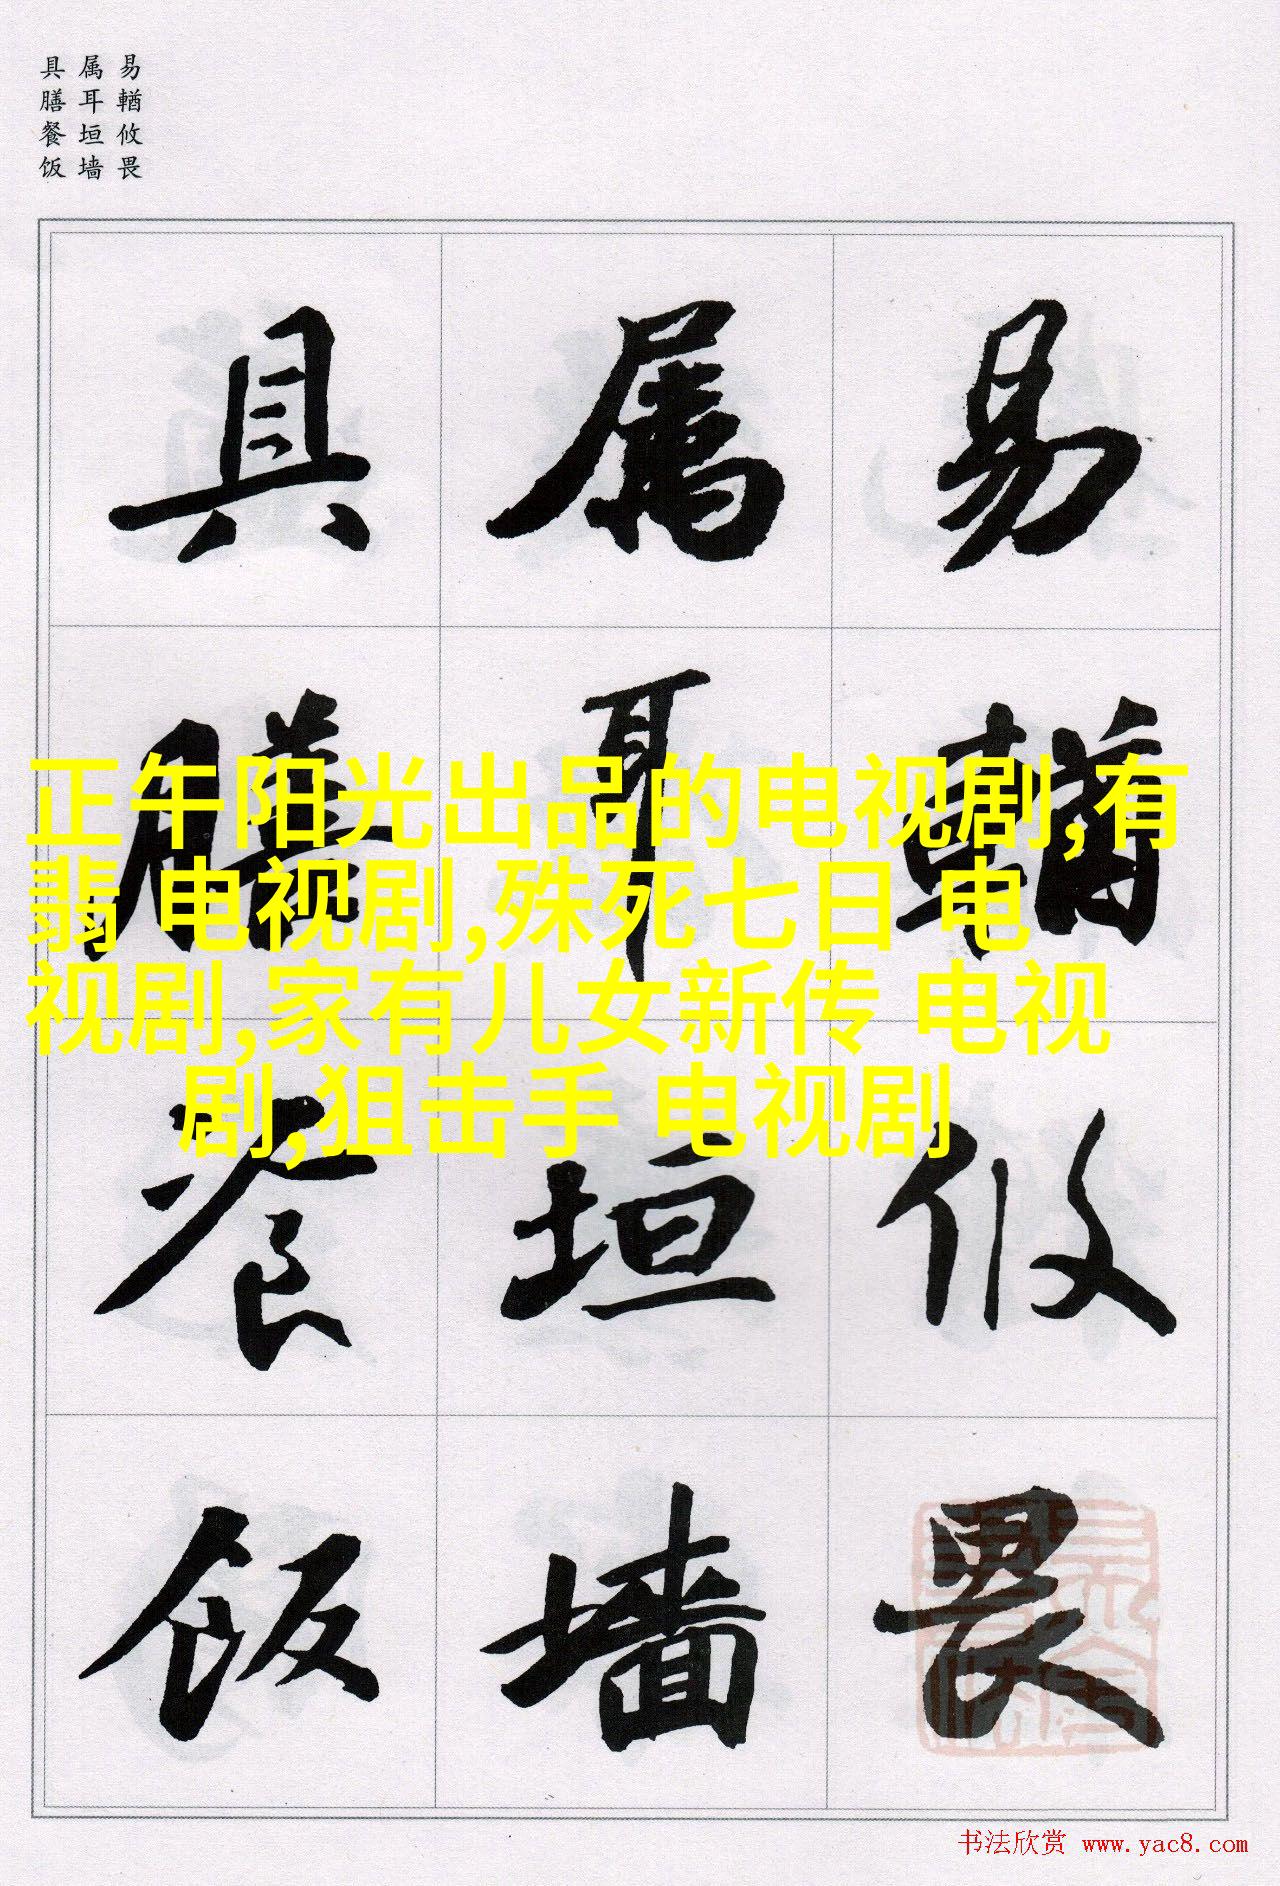 易輶攸畏
属耳垣墙
具膳餐饭
易輶攸畏
属耳垣墙
具膳餐饭
正午阳光出品的电视剧,有
翡 电视剧,殊死七日 电
视剧,家有儿女新传 电视
剧,狙击手 电视剧
书法欣赏 www.yac8.com